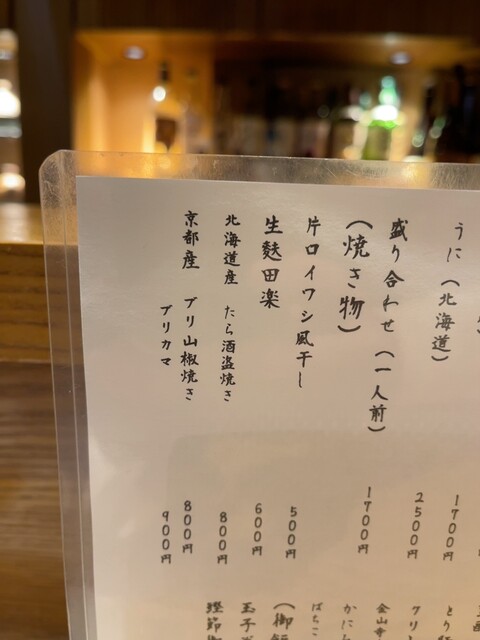 1700円
うに（北海道） 2500円
盛り合わせ（一人前） 1700円
（焼き物）
片口イワシ風干し 500円
生麩田楽 600円
北海道産 たら酒盗焼き 800円
京都産 ブリ山椒焼き 800円
ブリカマ 900円
クリ
金山寺
かに
ばちこ
（御飯
玉子